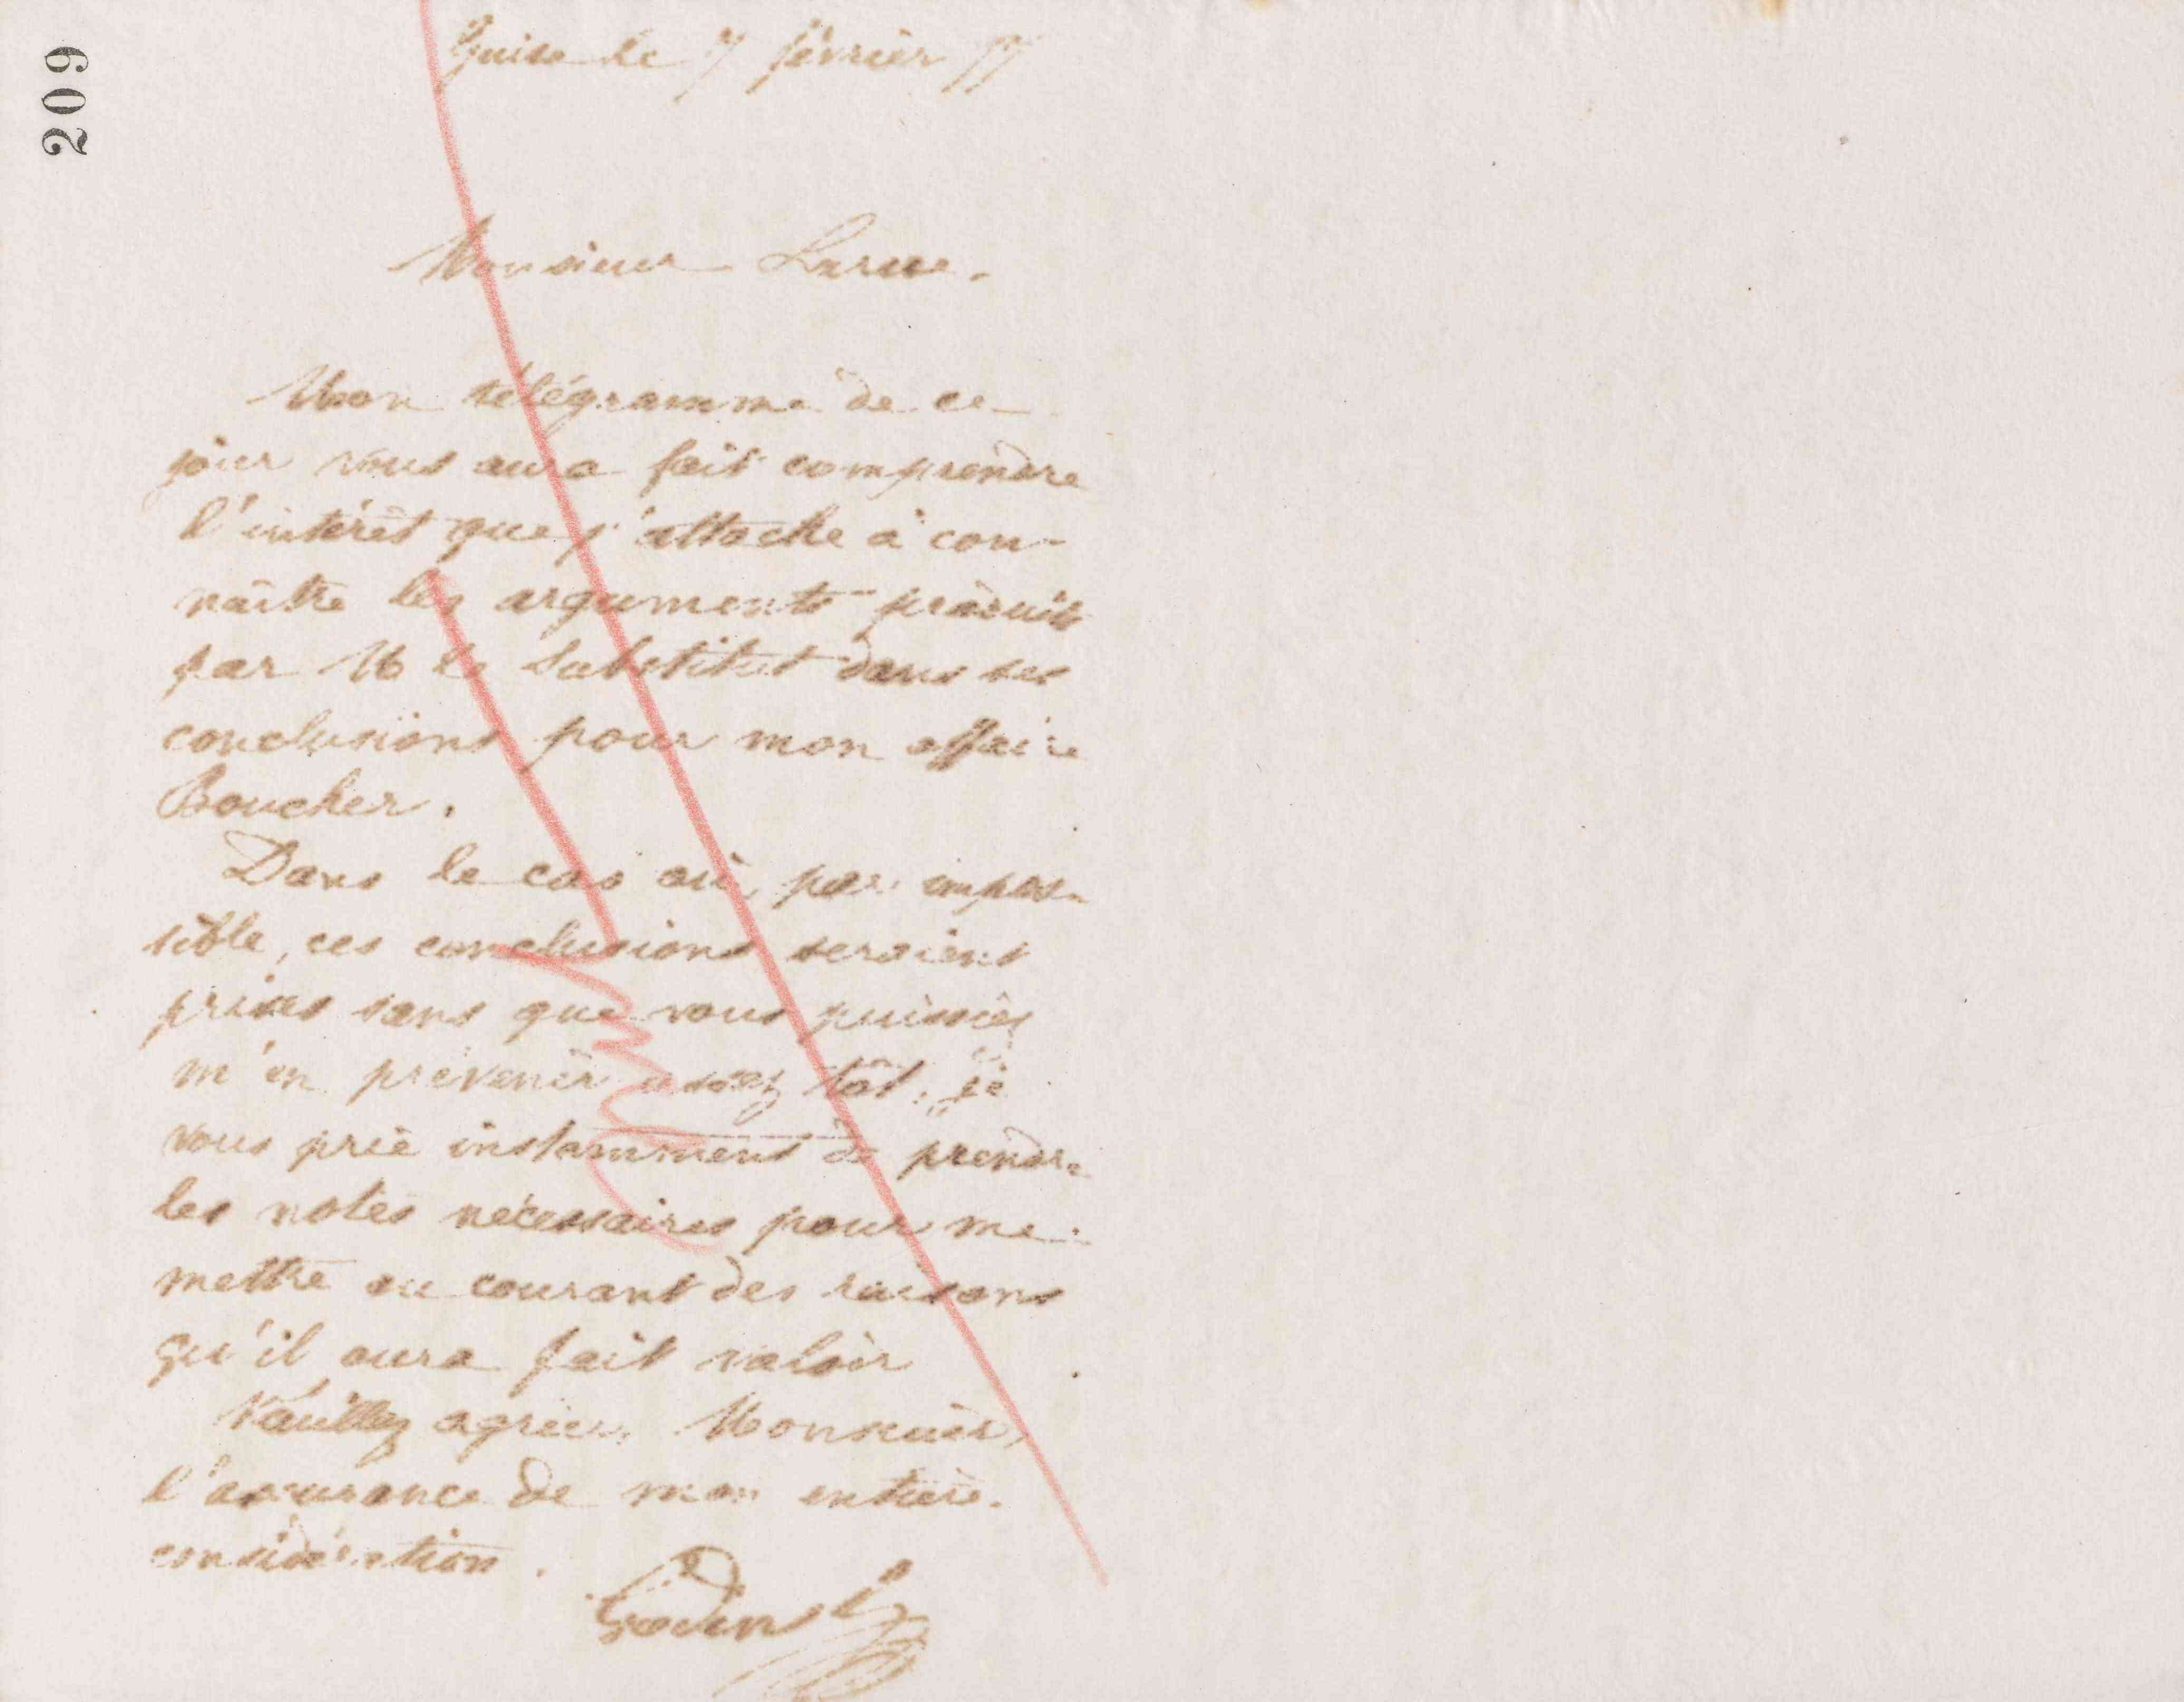 209
Guise le 7 février 77
Monsieur Larue.
Mon télégramme de ce
jour vous aura fait comprendre
l'intérêt que j'attache à con-
naître les arguments produits
par M le Substitut dans ses
conclusions pour mon affaire
Boucher.
Dans le cas où, par impos-
sible, ces conclusions seraient
prises sans que vous puissiez
m'en prévenir assez tôt, je
vous prie instamment de prendre
les notes nécessaires pour me
mettre au courant des raisons
qu'il aura fait valoir
Veuillez agréer, Monsieur,
l'assurance de mon entière
considération.
Godin